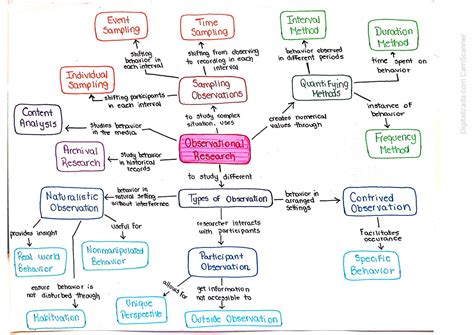 Event
Sampling
Time
Sampling
Interval
Method
Duration
Method
shifting
behavior in
each interval
shifting from observing
to recording in each
interval
behavior observed
in different periods
time spent on
behavior
Individual
Sampling
shifting participants
in each interval
Sampling
Observations
Quantifying
Methods
Content
Analysis
studies behavior
in the media
to study complex
situation, uses
creates numerical
values through
instance of
behavior
Frequency
Method
Observational
Research
Archival
Research
study behavior
in historical
records
to study different
Naturalistic
Observation
behavior in
natural setting
without interference
Types of Observation
behavior in
arranged
settings
Contrived
Observation
provides insight
useful for
researcher interacts
with participants
Facilitates
occurance
Real world
Behavior
Nonmanipulated
Behavior
Participant
Observation
Specific
Behavior
ensure behavior is
not disturbed through
allows for
get information
not accessible to
Habituation
Unique
Perspective
Outside Observation
Digitalizado com CamScanner